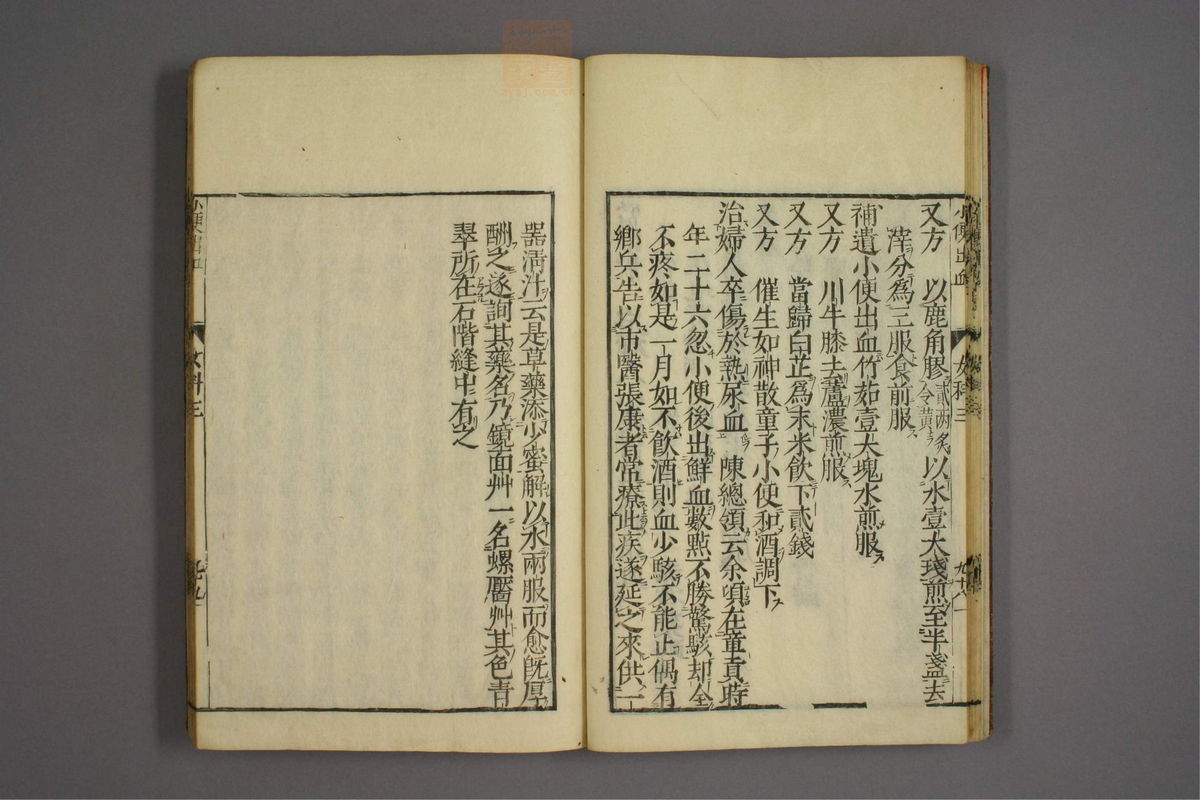 又方　以鹿角膠貳兩炙令黄以水壹大琖煎至半盞去
滓分爲三服食前服
補遺小便出血竹茹壹大塊水煎服
又方　川牛膝去蘆濃煎服
又方　當歸白芷爲末米飲下貳錢
又方　催生如神散童子小便和酒調下
治婦人卒傷於熱尿血　陳總領云余頃在童貢時
年二十六忽小便後出鮮血數點不勝驚駭却全
不疼如是一月如不飲酒則血少駭不能止偶有
鄉兵告以市醫張康者常療此疾遂延之來供一
小便出血
女科三
器清汁云是草藥添少蜜解以水兩服而愈旣厚
酬之遂詢其藥名乃鏡面艸一名螺靨艸其色青
翠所在石階縫中有之
小便出血
女科三